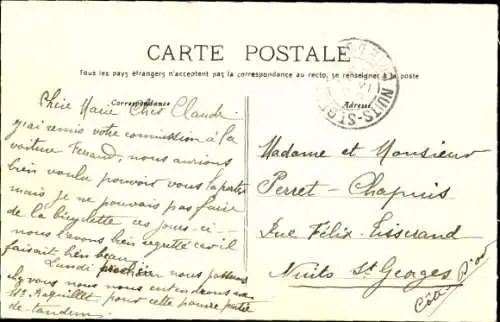 CARTE POSTALE
Tous les pays étrangers n'acceptent pas la correspondance au recto, se renseigner à la poste
Correspondance
Adresse
NUITS-ST-GE
Chère Marie Cher Claude
j'ai remis votre commission à la
voiture Ferrand, nous aurions
bien voulu pouvoir vous la porter
mais je ne pouvais pas faire
de la bicyclette ces jours-ci
nous l'avons bien regretté car il
faisait bien beau.
Lundi prochain nous
chez vous nous nous entendrons
Mr pour cette partie
de tandem.
Madame et Monsieur
Perret-Chapuis
Rue Félix-Tisserand
Nuits St Georges
Côte d'Or